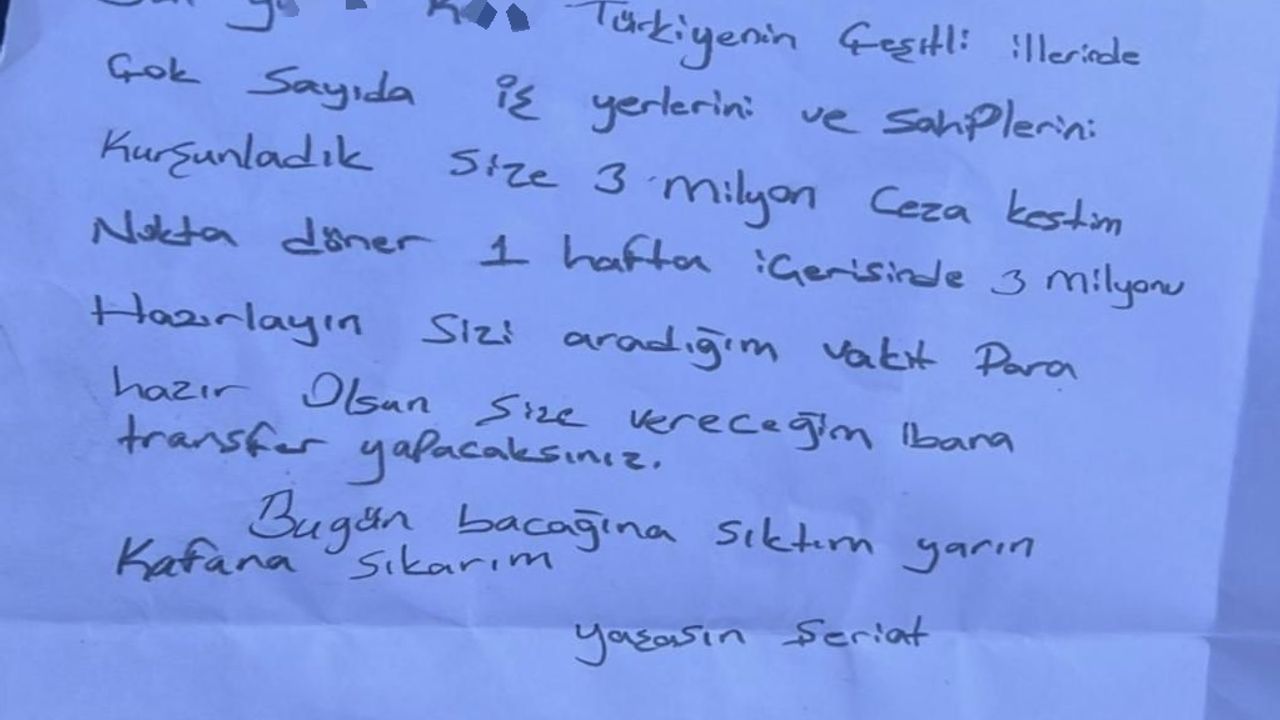 Türkiyenin Çeşitli illerinde
Çok Sayıda iş yerlerini ve sahiplerini
Kurşunladık Size 3 milyon Ceza kestim
Nokta döner 1 hafta içerisinde 3 milyonu
Hazırlayın Sizi aradığım vakit Para
hazır Olsun Size vereceğim Ibana
transfer yapacaksınız.
Bugün bacağına sıktım yarın
Kafana Sıkarım
yaşasın Şeriat